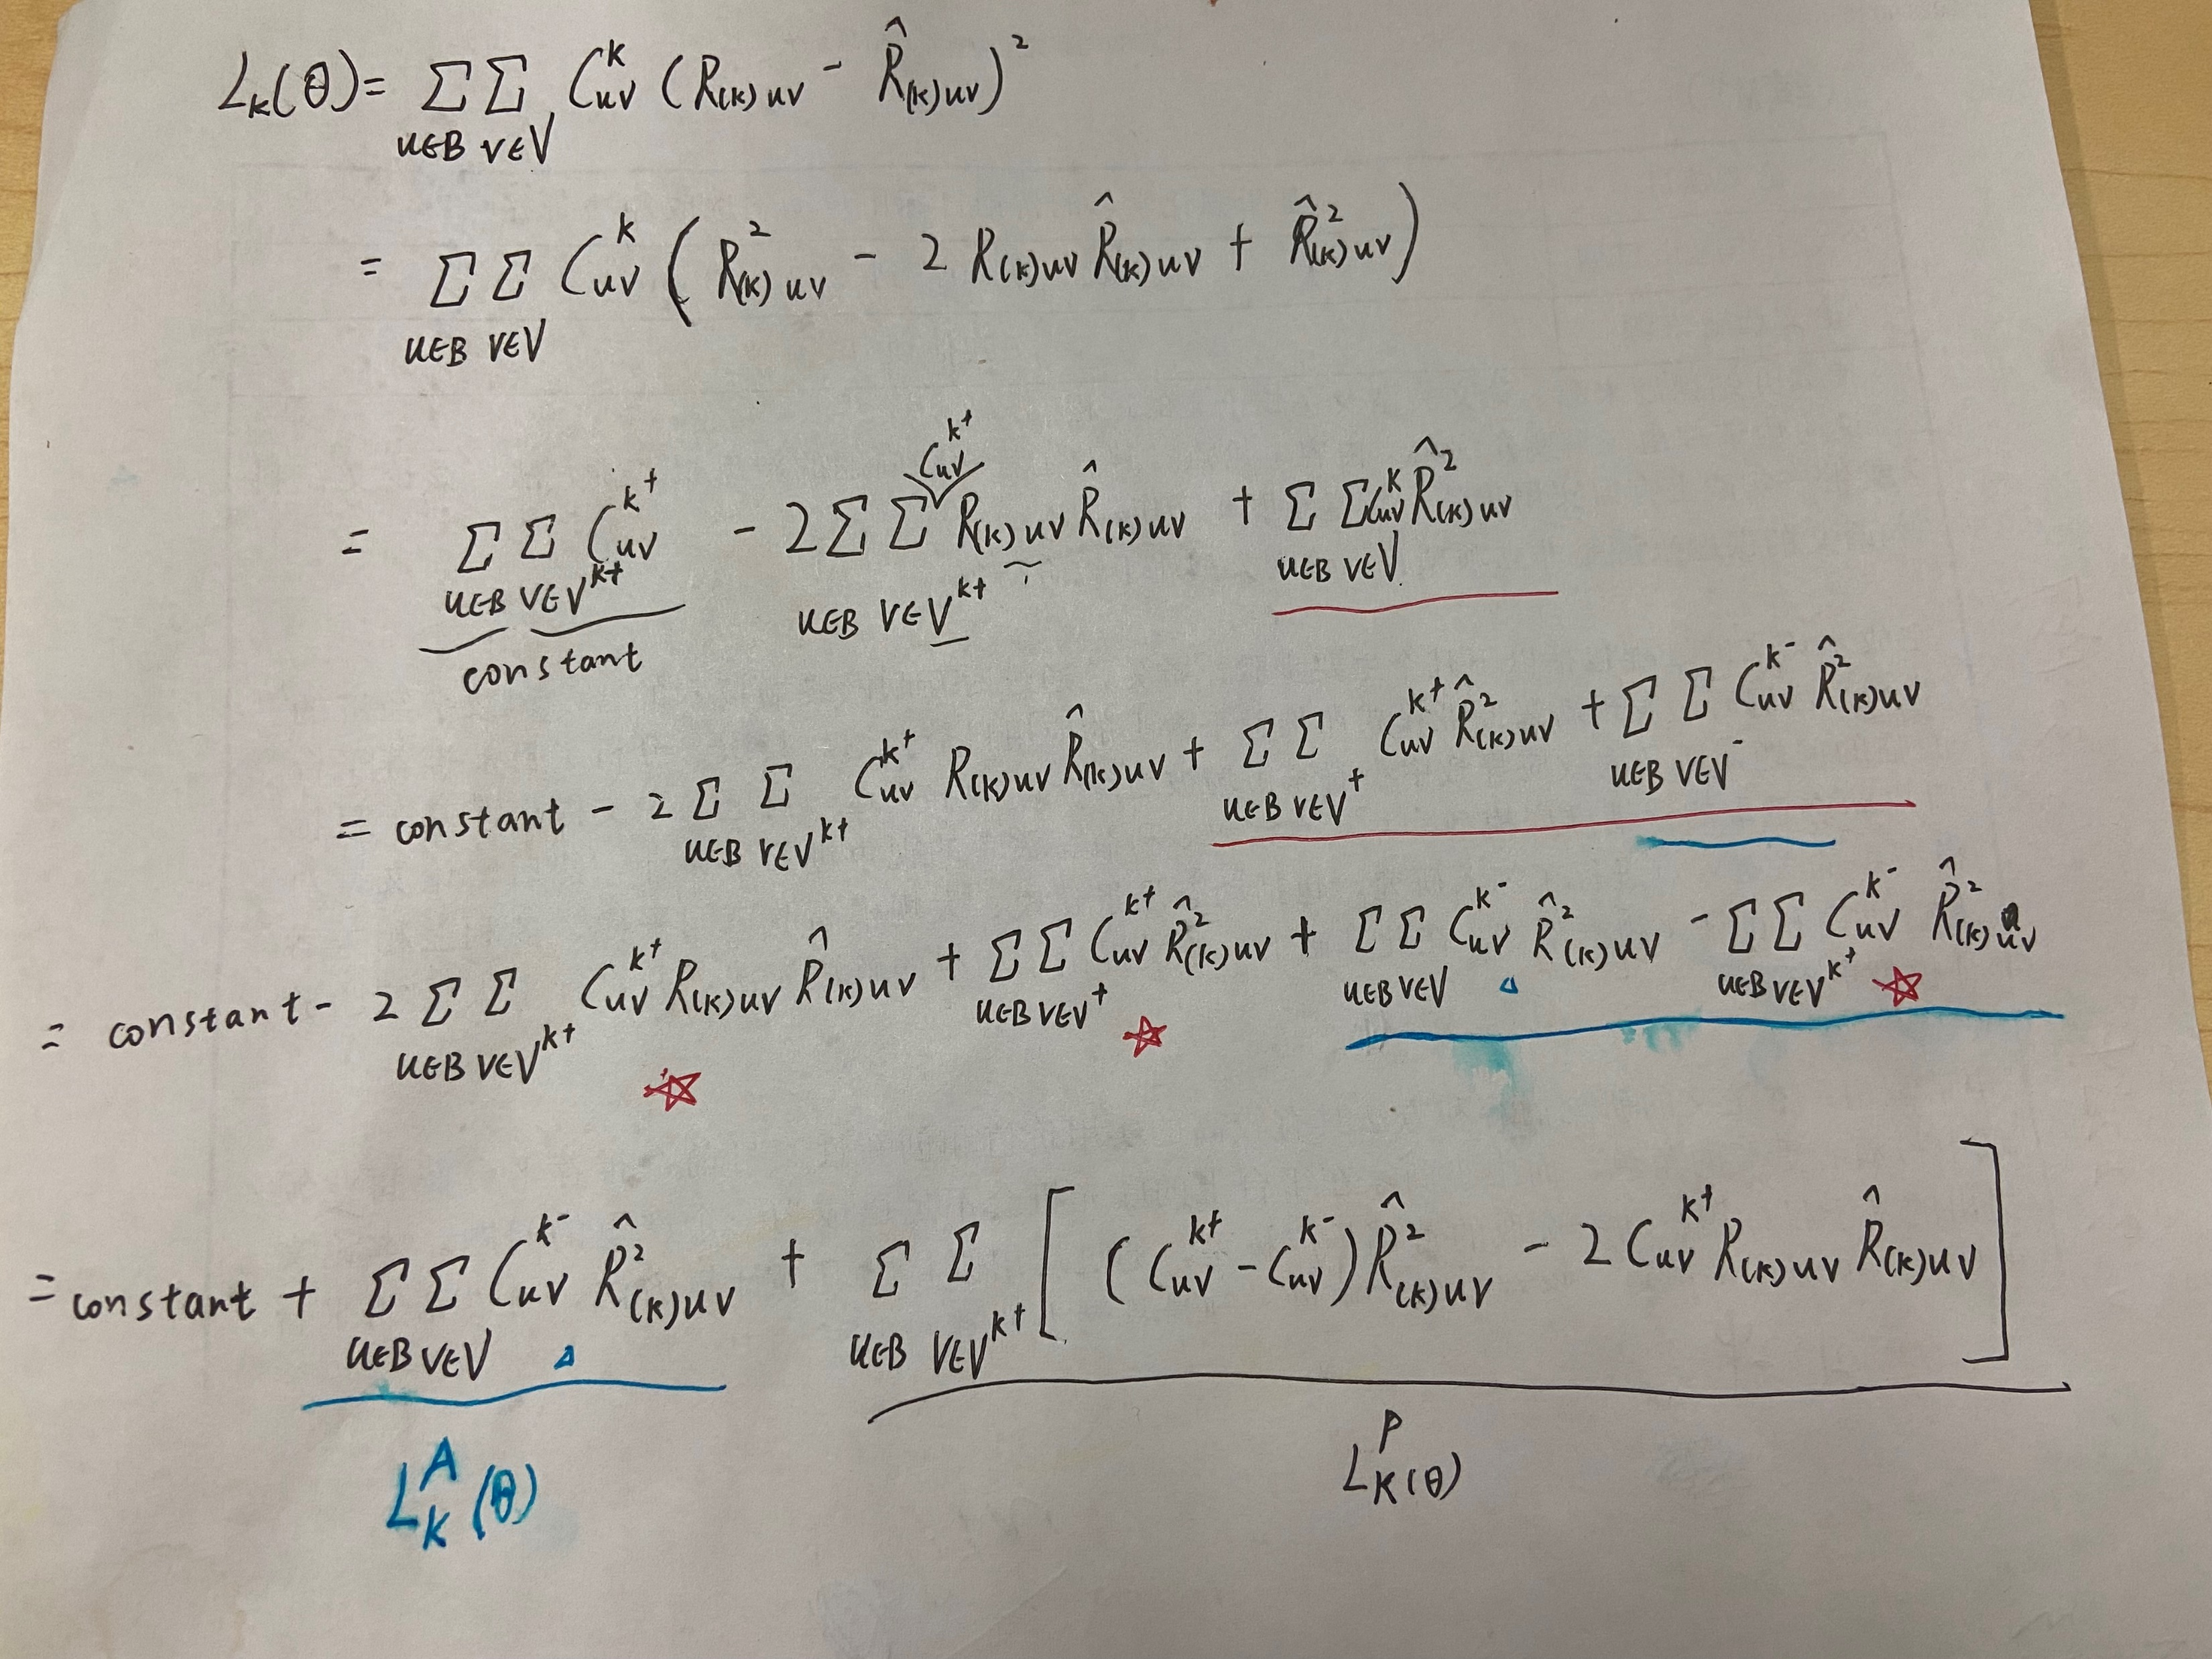 L_K(θ) = Σ_{u∈B} Σ_{v∈V} C_{uv}^{K} (R_{(K)uv} - R̂_{(K)uv})^2
= Σ_{u∈B} Σ_{v∈V} C_{uv}^{K} (R_{(K)uv}^2 - 2 R_{(K)uv} R̂_{(K)uv} + R̂_{(K)uv}^2)
= Σ_{u∈B} Σ_{v∈V^{K+}} C_{uv}^{K+} - 2 Σ_{u∈B} Σ_{v∈V^{K+}} C_{uv}^{K+} R_{(K)uv} R̂_{(K)uv} + Σ_{u∈B} Σ_{v∈V} C_{uv}^{K} R̂_{(K)uv}^2
constant
= constant - 2 Σ_{u∈B} Σ_{v∈V^{K+}} C_{uv}^{K+} R_{(K)uv} R̂_{(K)uv} + Σ_{u∈B} Σ_{v∈V^+} C_{uv}^{K+} R̂_{(K)uv}^2 + Σ_{u∈B} Σ_{v∈V^-} C_{uv}^{K-} R̂_{(K)uv}^2
= constant - 2 Σ_{u∈B} Σ_{v∈V^{K+}} C_{uv}^{K+} R_{(K)uv} R̂_{(K)uv} + Σ_{u∈B} Σ_{v∈V^+} C_{uv}^{K+} R̂_{(K)uv}^2 + Σ_{u∈B} Σ_{v∈V} C_{uv}^{K-} R̂_{(K)uv}^2 - Σ_{u∈B} Σ_{v∈V^{K+}} C_{uv}^{K-} R̂_{(K)uv}^2
= constant + Σ_{u∈B} Σ_{v∈V} C_{uv}^{K-} R̂_{(K)uv}^2 + Σ_{u∈B} Σ_{v∈V^{K+}} [(C_{uv}^{K+} - C_{uv}^{K-}) R̂_{(K)uv}^2 - 2 C_{uv}^{K+} R_{(K)uv} R̂_{(K)uv}]
L_K^A(θ) L_K^P(θ)